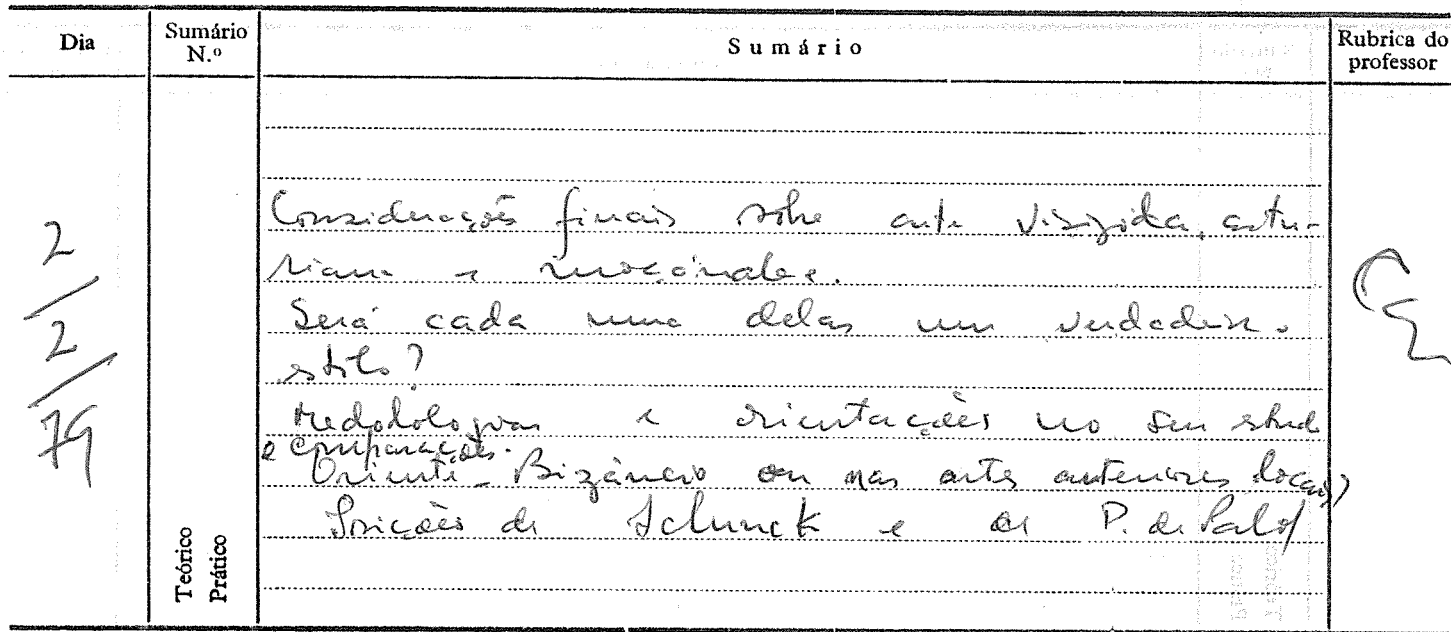 Dia
Sumário N.º
Sumário
Rubrica do professor
2/2/79
Considerações finais sobre arte visigoda, astu-
riana e moçárabe.
Será cada uma delas um verdadeiro
estilo?
Medodologias e orientações no seu estudo
e comparações.
Oriente - Bizâncio ou nas artes anteriores locais?
Posições de Schlunck e de P. de Palol
Teórico
Prático